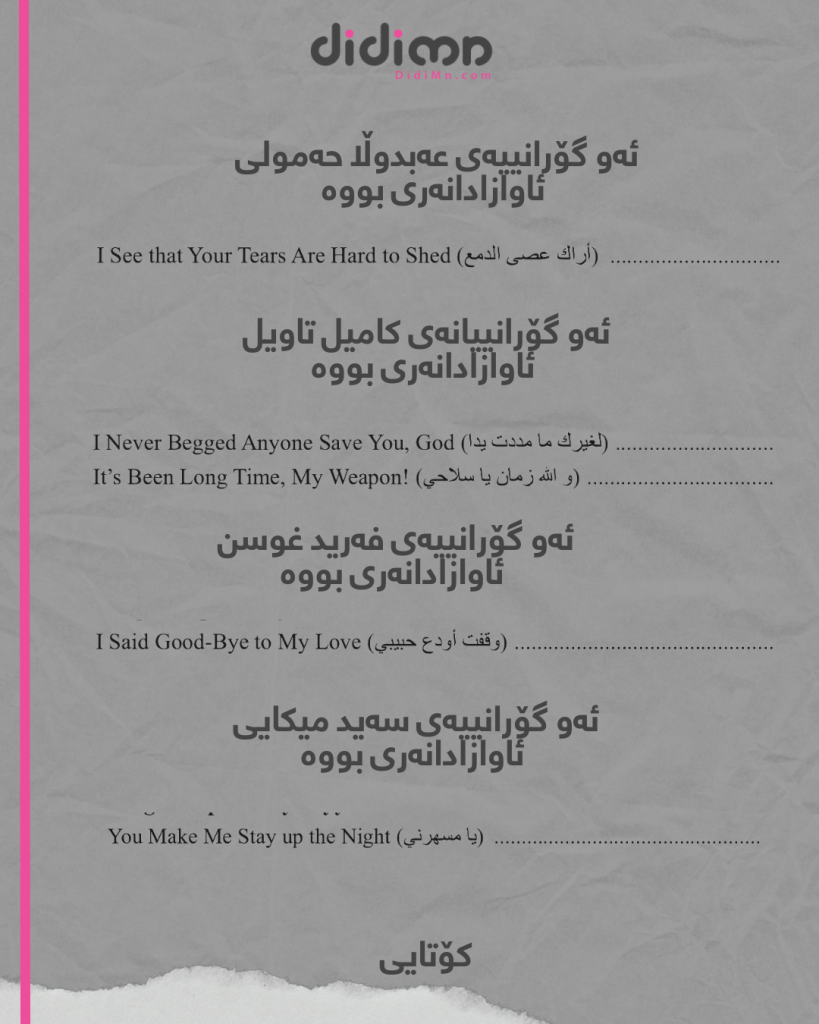 didimn
DidiMn.com
ئەو گۆرانییەی عەبدوڵا حەمولی
ئاوازادانەری بووە
I See that Your Tears Are Hard to Shed (أراك عصى الدمع) ...............................
ئەو گۆرانییانەی کامیل تاویل
ئاوازادانەری بووە
I Never Begged Anyone Save You, God (لغيرك ما مددت يدا) ............................
It’s Been Long Time, My Weapon! (و الله زمان يا سلاحي) .................................
ئەو گۆرانییەی فەرید غوسن
ئاوازادانەری بووە
I Said Good-Bye to My Love (وقفت أودع حبيبي) ...............................................
ئەو گۆرانییەی سەید میکایی
ئاوازادانەری بووە
You Make Me Stay up the Night (يا مسهرني) .................................................
کۆتایی